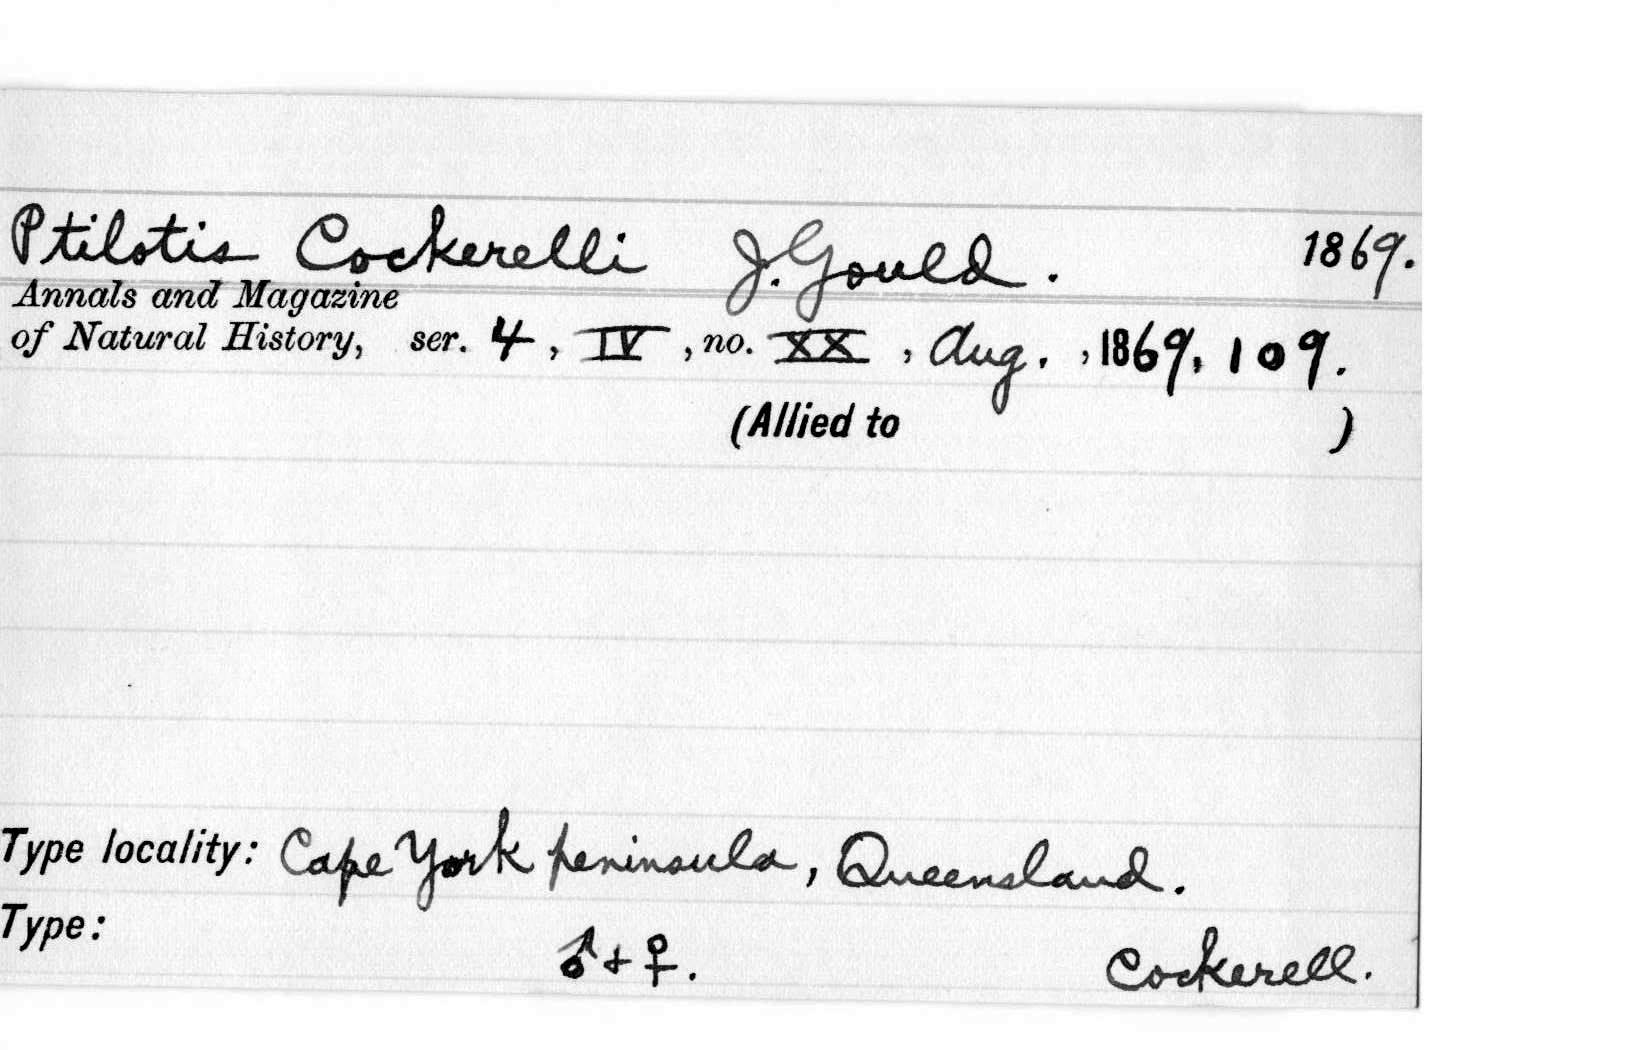 Ptilotis Cockerelli J. Gould. 1869.
Annals and Magazine
of Natural History, ser. 4, IV, no. XX, Aug., 1869, 109.
(Allied to )
Type locality: Cape York peninsula, Queensland.
Type: ♂ + ♀. Cockerell.